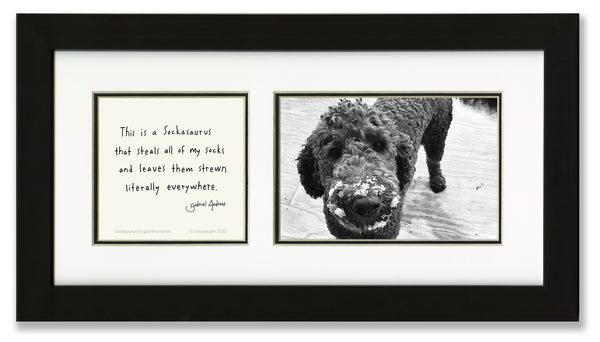 This is a Sockasaurus
that steals all of my socks
and leaves them strewn
literally everywhere.
Gabriel Andreas
Sockasaurus by gabriel andreas © storypeople 2023